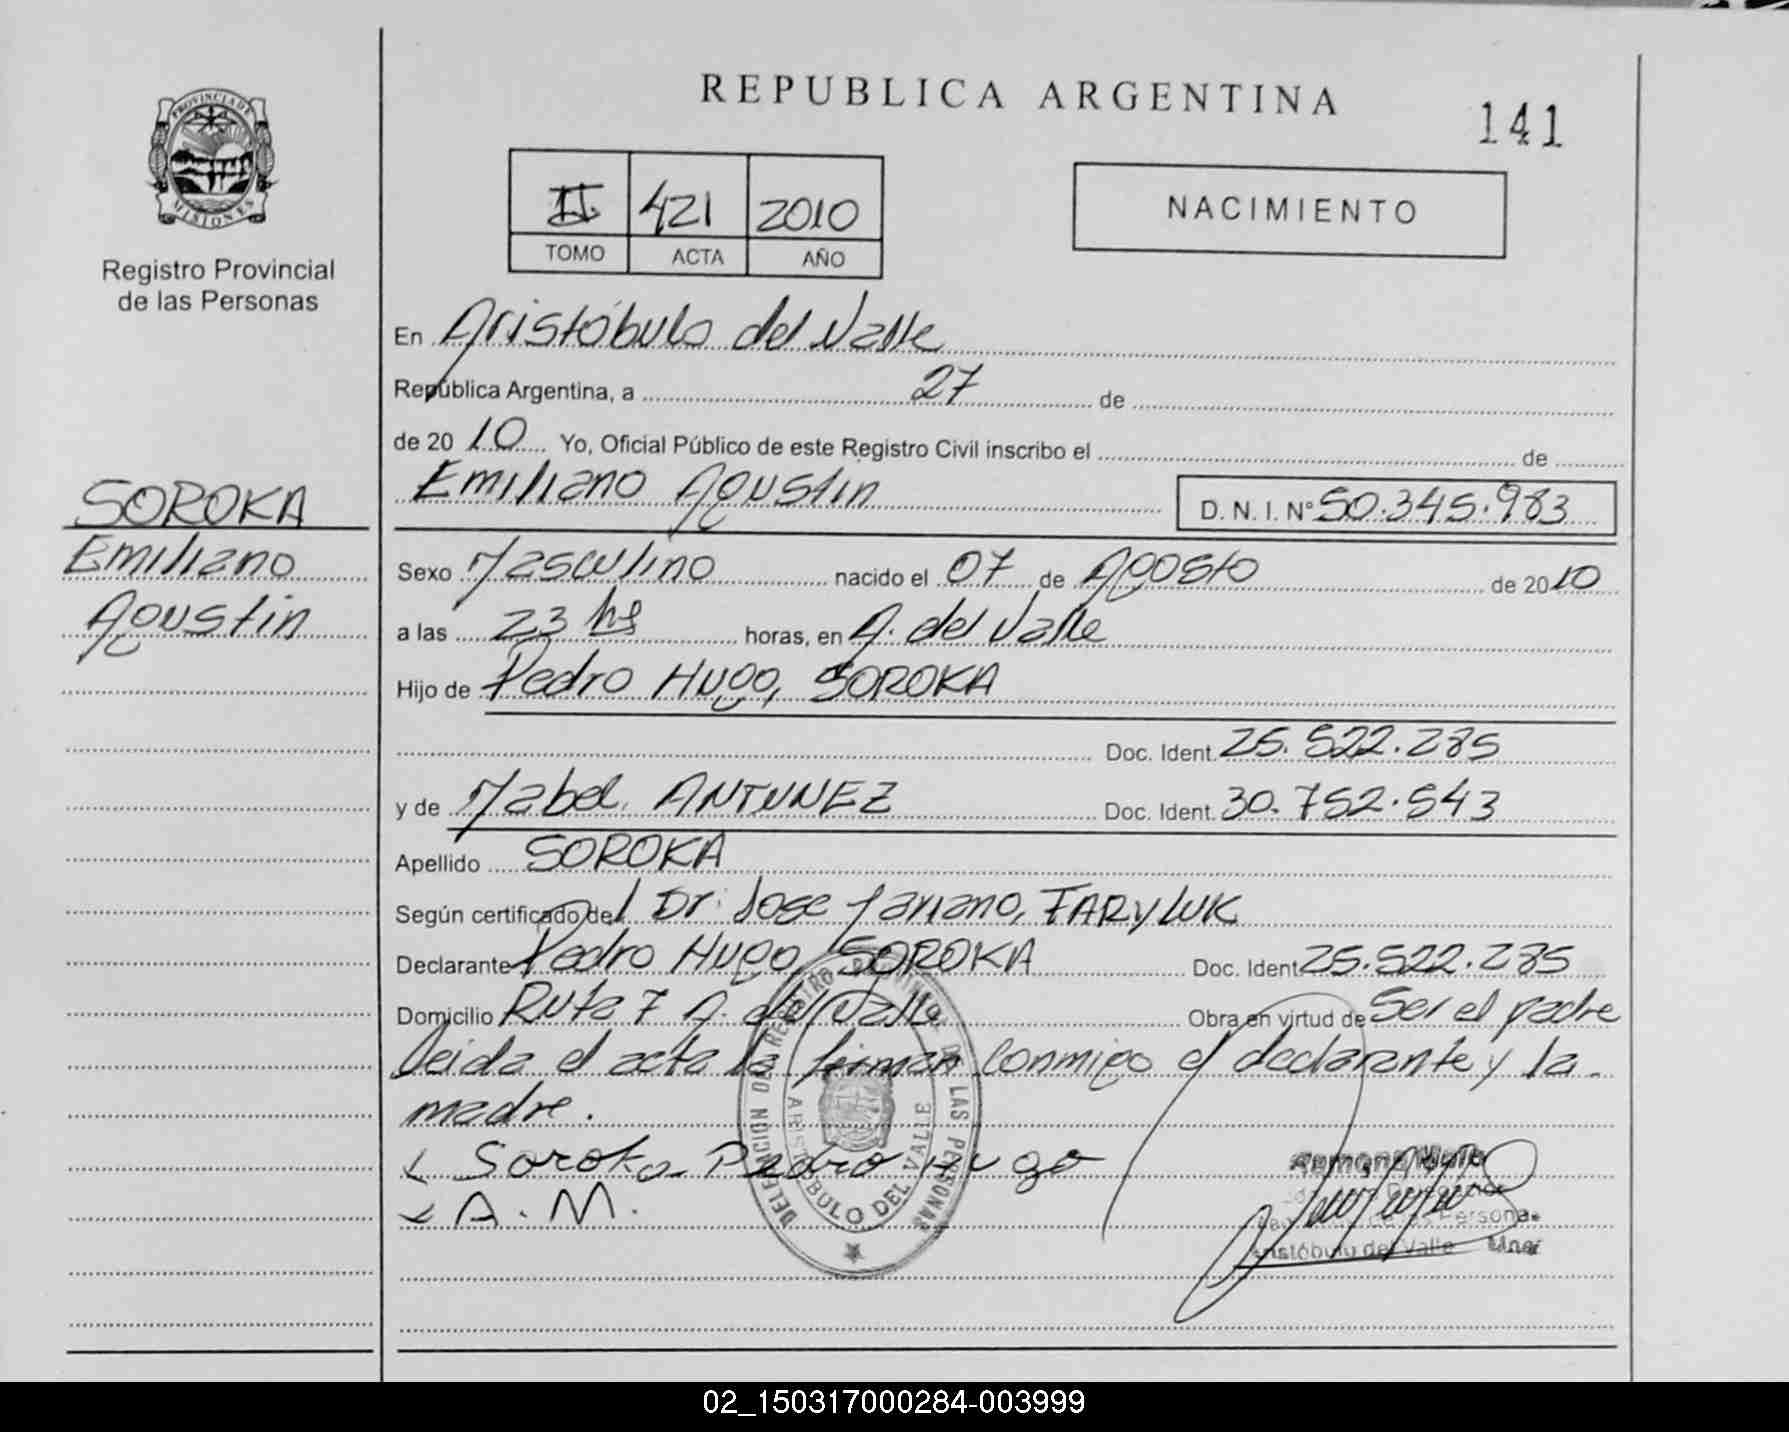 REPUBLICA ARGENTINA
141
PROVINCIA DE
MISIONES
Registro Provincial
de las Personas
II 421 2010
TOMO ACTA AÑO
NACIMIENTO
En Aristóbulo del Valle
República Argentina, a 27 de
de 2010 Yo, Oficial Público de este Registro Civil inscribo el de
Emiliano Agustin
D. N. I. Nº 50.345.983
SOROKA
Emiliano
Agustin
Sexo Masculino nacido el 07 de Agosto de 2010
a las 23 hs horas, en A. del Valle
Hijo de Pedro Hugo, SOROKA
Doc. Ident. 25.522.285
y de Mabel. ANTUNEZ Doc. Ident. 30.752.543
Apellido SOROKA
Según certificado del Dr: Jose Mariano, TARYLUK
Declarante Pedro Hugo, SOROKA Doc. Ident. 25.522.285
Domicilio Ruta 7 A. del Valle Obra en virtud de Ser el padre
Leida el acta la firman Conmigo el declarante y la
madre.
Soroka Pedro Hugo
A. M.
DELEGACION DE REGISTRO PROVINCIAL DE LAS PERSONAS
ARISTOBULO DEL VALLE
Aristóbulo del Valle
02_150317000284-003999